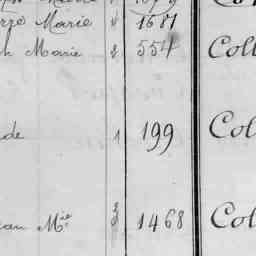 Marie 1681
h Marie 2 554 Coll
de 1 199 Col
ean Mie 3 1468 Col